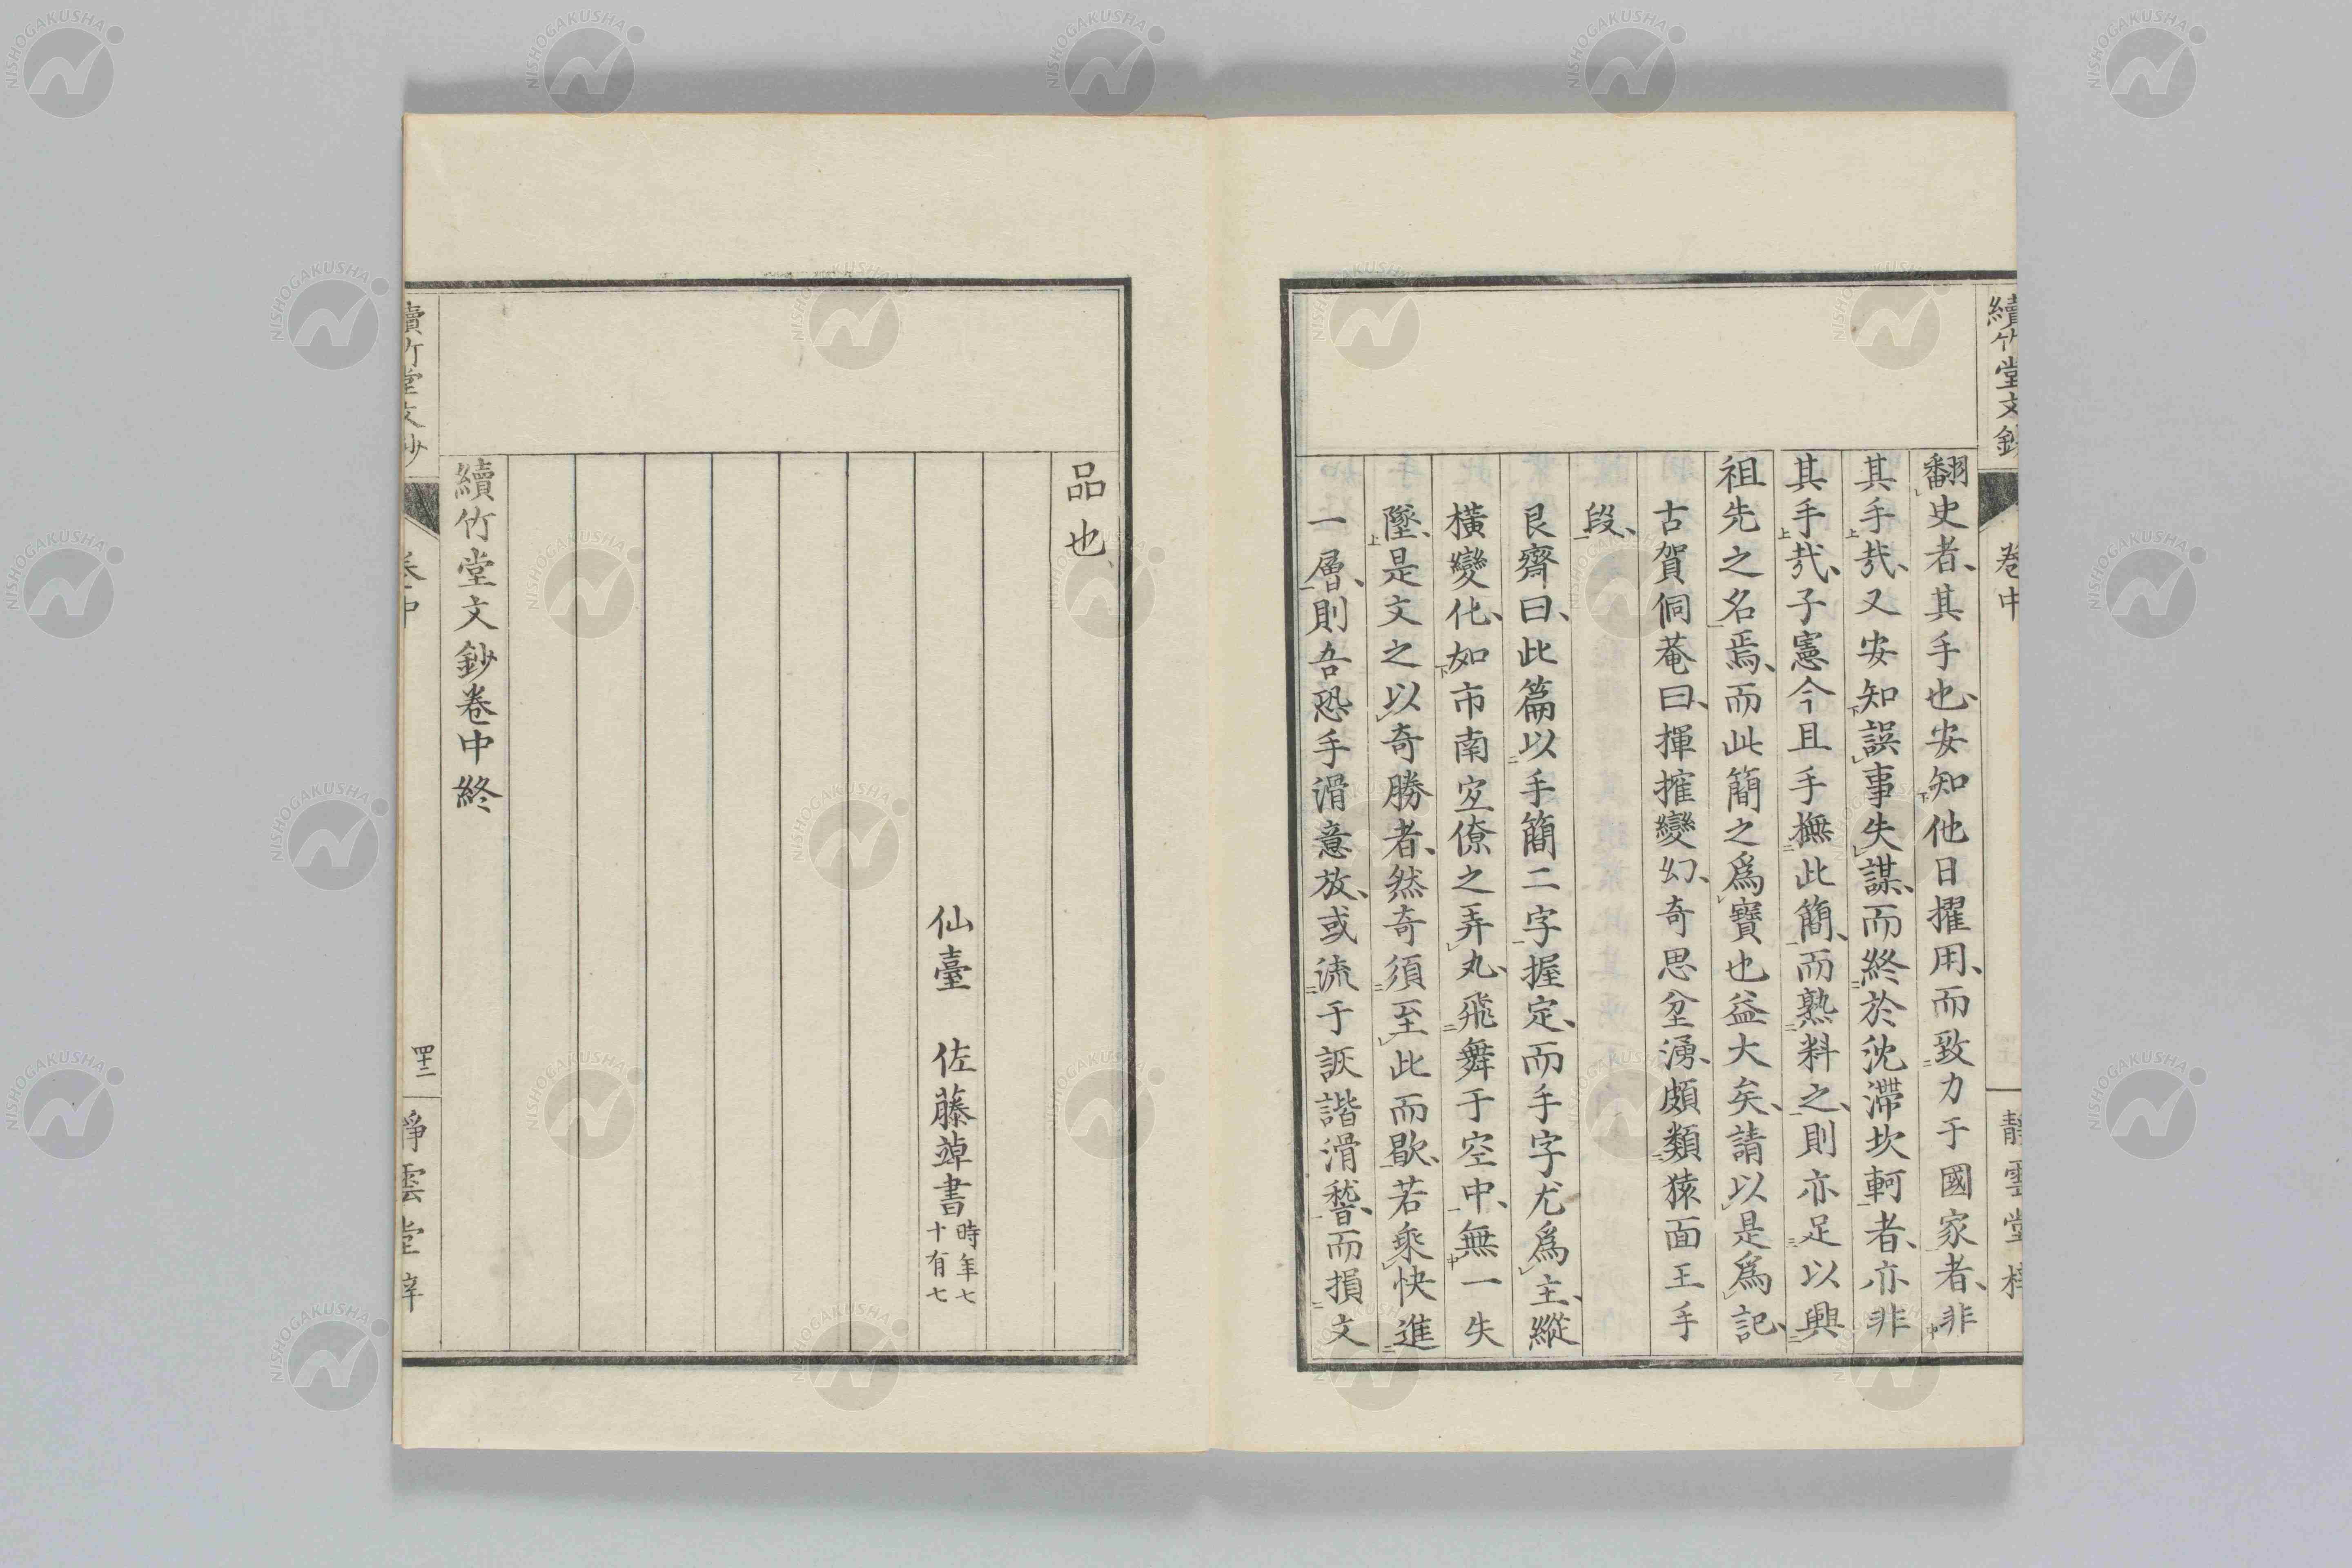 續竹堂文鈔 卷中 靜雲堂梓
翻史者、其手也、安知他日擢用、而致力于國家者、非
其手哉、又安知誤事失謀、而終於沈滯坎軻者、亦非
其手哉、子憲今且手撫此簡、而熟料之、則亦足以興
祖先之名焉、而此簡之爲寶也益大矣、請以是爲記、
古賀侗菴曰、揮搉變幻、奇思坌湧、頗類猿面王手
段、
艮齋曰、此篇以手簡二字握定、而手字尤爲主、縱
橫變化、如市南宜僚之弄丸、飛舞于空中、無一失
墜、是文之以奇勝者、然奇須至此而歇、若乘快進
一層、則吾恐手滑意放、或流于詼諧滑稽、而損文
品也、
仙臺 佐藤竴書 時年七十有七
續竹堂文鈔卷中終
續竹堂文鈔 卷中 四十二 靜雲堂梓